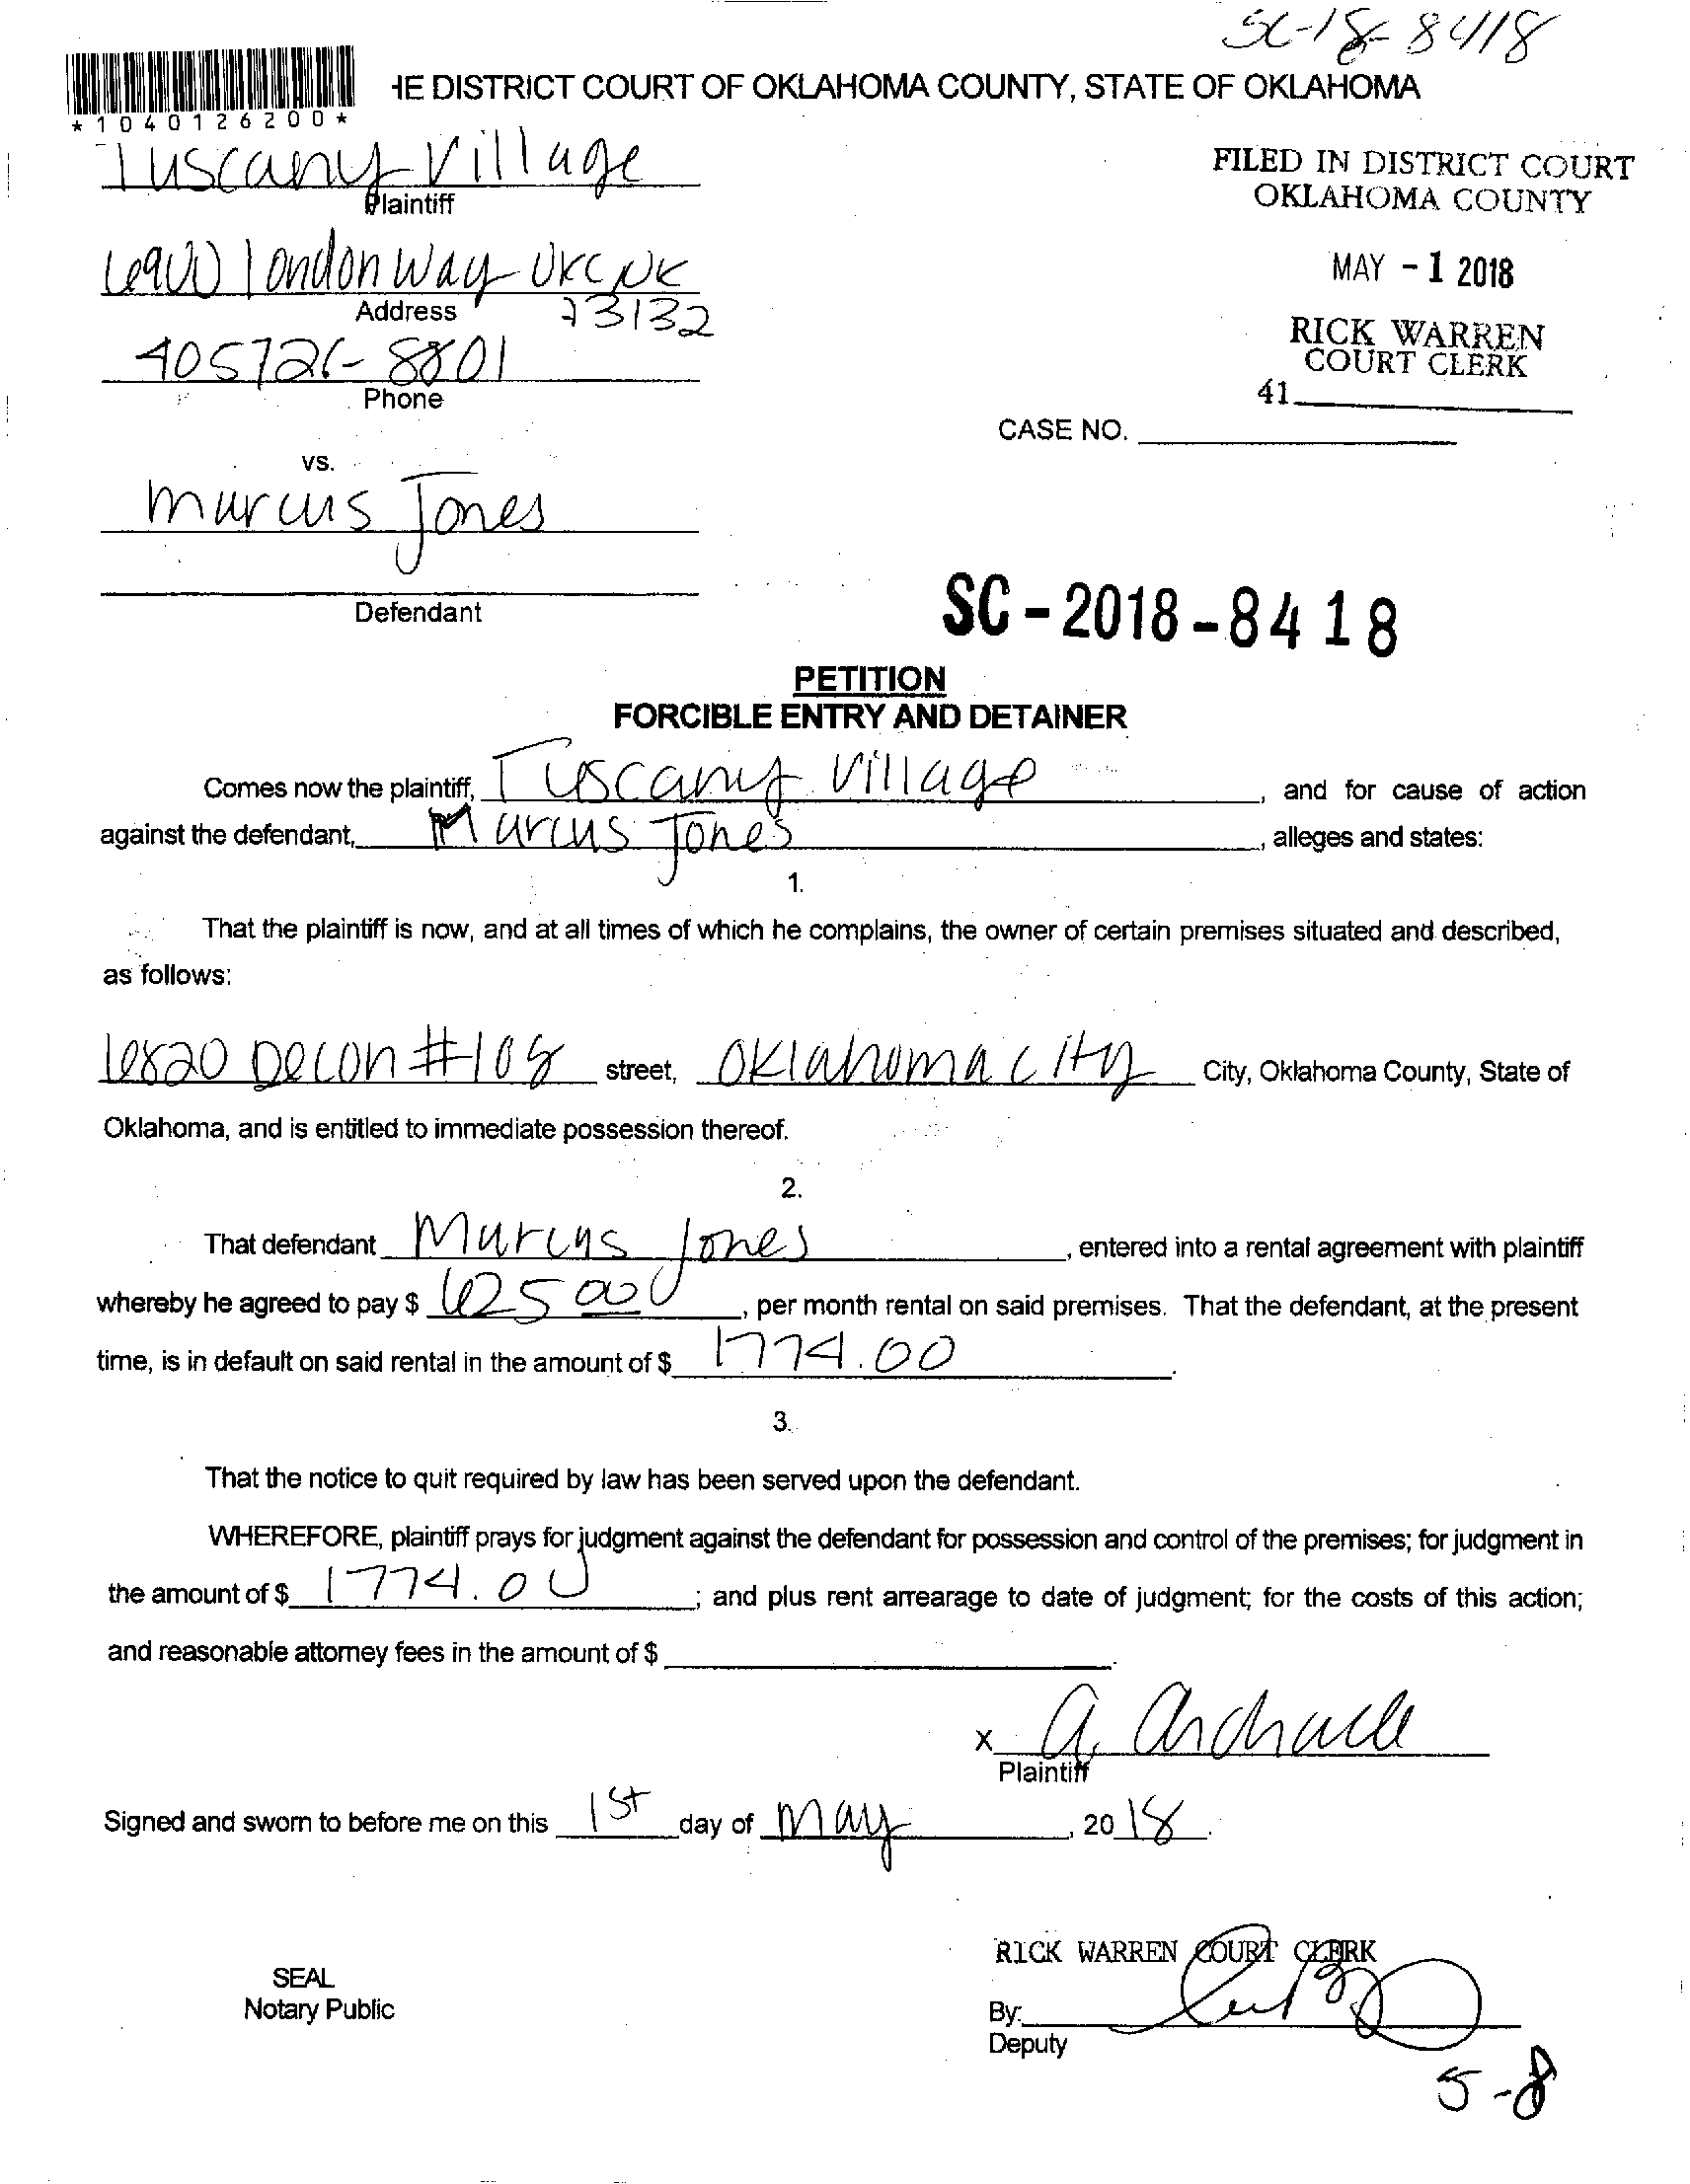 SC-18-8418
HE DISTRICT COURT OF OKLAHOMA COUNTY, STATE OF OKLAHOMA
*1040126200*
Tuscany Village
Plaintiff
FILED IN DISTRICT COURT
OKLAHOMA COUNTY
6900 London Way OKC OK
Address
73132
MAY - 1 2018
405 721-8801
Phone
RICK WARREN
COURT CLERK
41
CASE NO.
vs.
Marcus Jones
Defendant
SC - 2018 - 8418
PETITION
FORCIBLE ENTRY AND DETAINER
Comes now the plaintiff, Tuscany Village, and for cause of action
against the defendant, Marcus Jones, alleges and states:
1.
That the plaintiff is now, and at all times of which he complains, the owner of certain premises situated and described,
as follows:
6820 #108 street, Oklahoma City City, Oklahoma County, State of
Oklahoma, and is entitled to immediate possession thereof.
2.
That defendant Marcus Jones, entered into a rental agreement with plaintiff
whereby he agreed to pay $ 625 00, per month rental on said premises. That the defendant, at the present
time, is in default on said rental in the amount of $ 1774.00.
3.
That the notice to quit required by law has been served upon the defendant.
WHEREFORE, plaintiff prays for judgment against the defendant for possession and control of the premises; for judgment in
the amount of $ 1774.00; and plus rent arrearage to date of judgment; for the costs of this action;
and reasonable attorney fees in the amount of $ .
X A. Andrade
Plaintiff
Signed and sworn to before me on this 1st day of May, 2018.
RICK WARREN COURT CLERK
SEAL
Notary Public
By:
Deputy
5-8